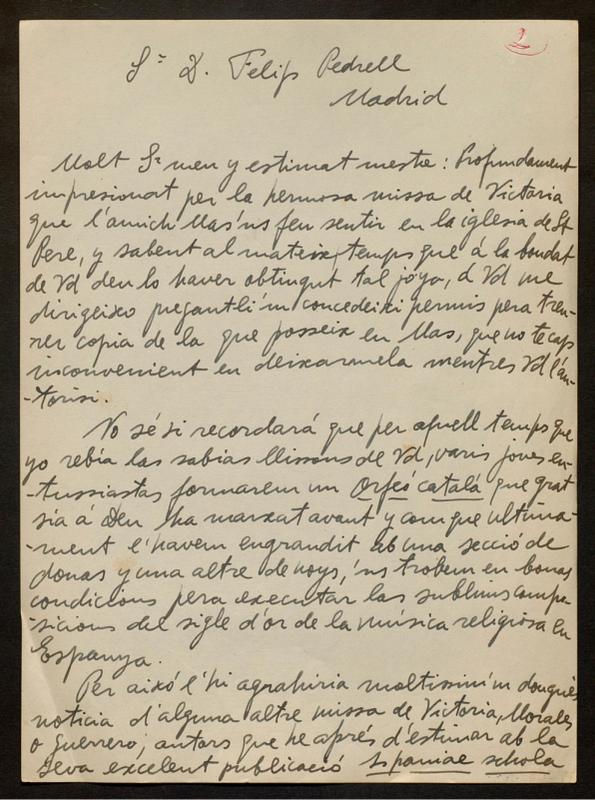 2
Sr D. Felip Pedrell
Madrid
Molt Sr meu y estimat mestre: Profundament
impresionat per la hermosa missa de Victoria
que l'amich Mas 'ns feu sentir en la iglesia de St
Pere, y sabent al mateix temps que á la bondat
de Vd deu lo haver obtingut tal joya, á Vd me
dirigeixo pregantli'm concedeixi permis pera treu-
rer copia de la que posseix en Mas, que no te cap
inconvenient en deixarmela mentres Vd l'au-
-torisi.
No sé si recordará que per aquell temps que
yo rebía las sabias llissons de Vd, varis joves en-
-tussiastas formarem un Orfeó català que grat
sia á Deu ha marxat avant y com que ultima-
-ment l'havem engrandit ab una secció de
donas y una altre de noys, 'ns trobem en bonas
condicions pera executar las sublims compo-
-sicions del sigle d'or de la música religiosa en
Espanya.
Per aixó l'hi agrahiria moltissim 'm dongués
noticia d'alguna altre missa de Victoria, Morales
o Guerrero, autors que he aprés d'estimar ab la
seva excelent publicació Ispaniae schola